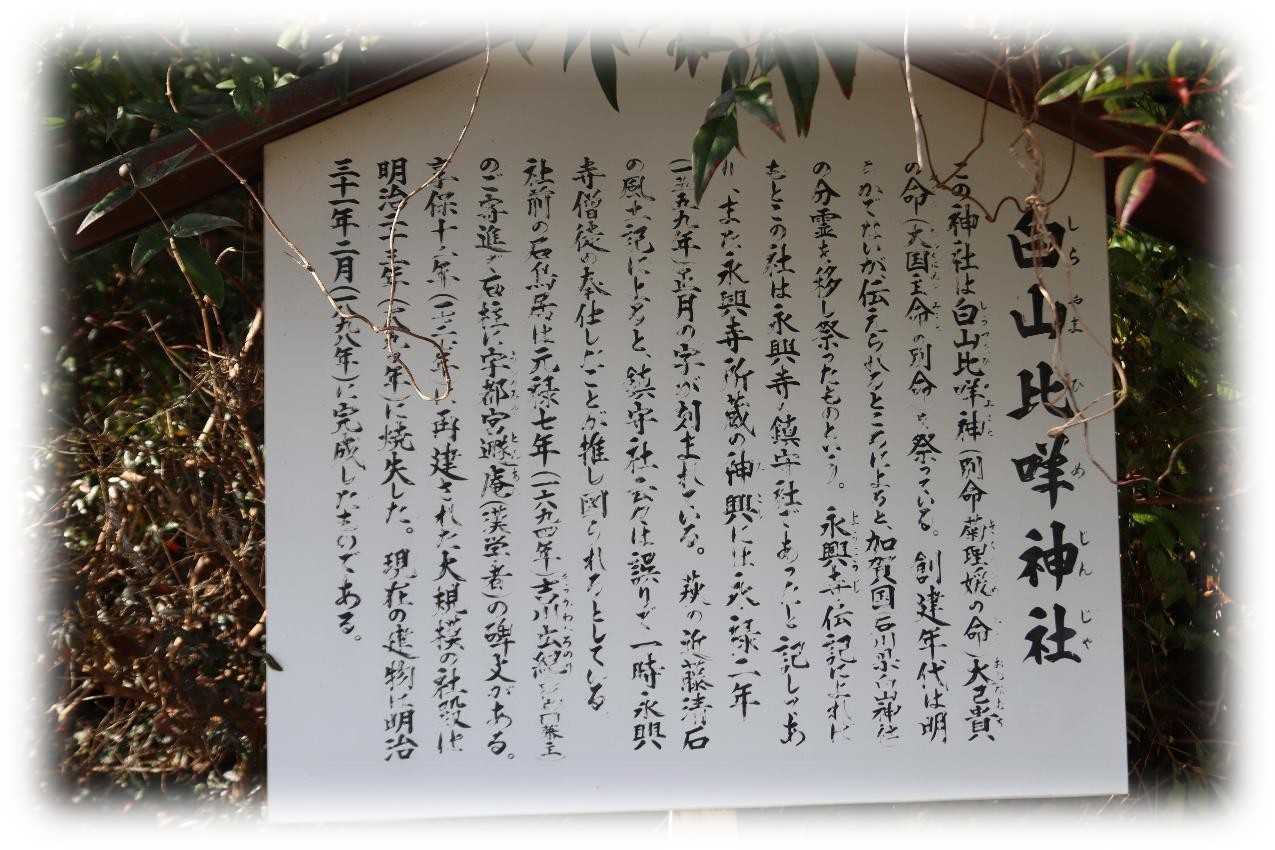 白山比咩神社
しらやまひめじんじゃ
この神社は白山比咩神(別命菊理媛の命)大己貴
の命(大国主命の別命)を祭っている。創建年代は明
かでないが伝えられるところによると、加賀国石川県白山神社
の分霊を移し祭ったものという。永興寺伝記によれば
もとこの社は永興寺の鎮守社であったと記しあ
り、また永興寺所蔵の神輿には永禄二年
(一五五九年)正月の字が刻まれている。萩の近藤清石
の風土記によると、鎮守社云々は誤りで一時永興
寺僧徒の奉仕したことが推し図られるとしている
社前の石鳥居は元禄七年(一六九四年)吉川広紀
のご寄進で石柱に宇都宮遯庵(漢学者)の碑文がある。
享保十六年 再建された大規模の社殿は
明治 年 に焼失した。現在の建物は明治
三十一年二月(一八九八年)に完成したものである。